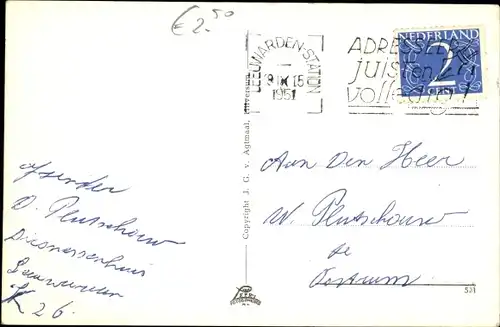 € 2.50
LEEUWARDEN-STATION
1951
ADRESSEER
juist en
volledig!
NEDERLAND
2
CENT
Aan Den Heer
W. Plutschouw
te
Oostrum
afzender
D. Plutschouw
Diaconessenhuis
Leeuwarden
K 26.
Copyright J. G. v. Agtmaal, Hilversum
531